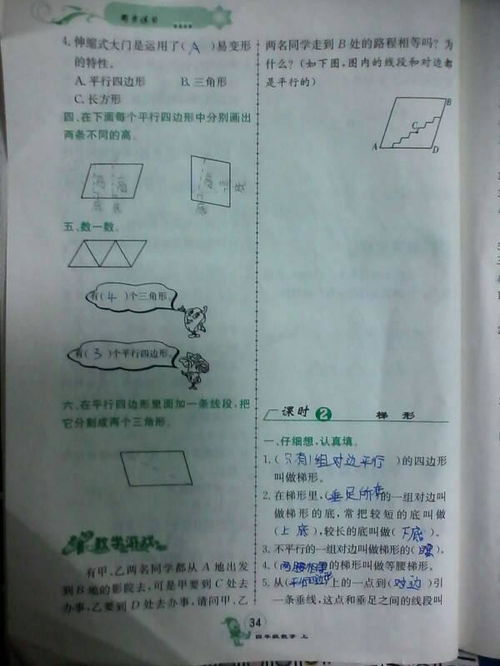 4.伸缩式大门是运用了(A)易变形
的特性。
A.平行四边形 B.三角形
C.长方形
四、在下面每个平行四边形中分别画出
两条不同的高。
高 高
高 底
五、数一数。
有(4)个三角形。
有(3)个平行四边形。
六、在平行四边形里面加一条线段,把
它分割成两个三角形。
数学游戏
有甲、乙两名同学都从A地出发
到B地的影院去,可是甲要到C处去
办事,乙要到D处去办事,请问甲、乙
两名同学走到B处的路程相等吗?为
什么?(如下图,图内的线段和对边都
是平行的)
A B C D
课时2 梯形
一、仔细想,认真填。
1.(只有1组对边平行)的四边形
叫做梯形。
2.在梯形里,(垂足所在)的一组对边叫
做梯形的底,常把较短的底叫做
(上底),较长的底叫做(下底)。
3.不平行的一组对边叫做梯形的(腰)。
4.(两腰相等)的梯形叫做等腰梯形。
5.从(平行四边形)上的一点到(对边)引
一条垂线,这点和垂足之间的线段叫
34
四年级数学 上